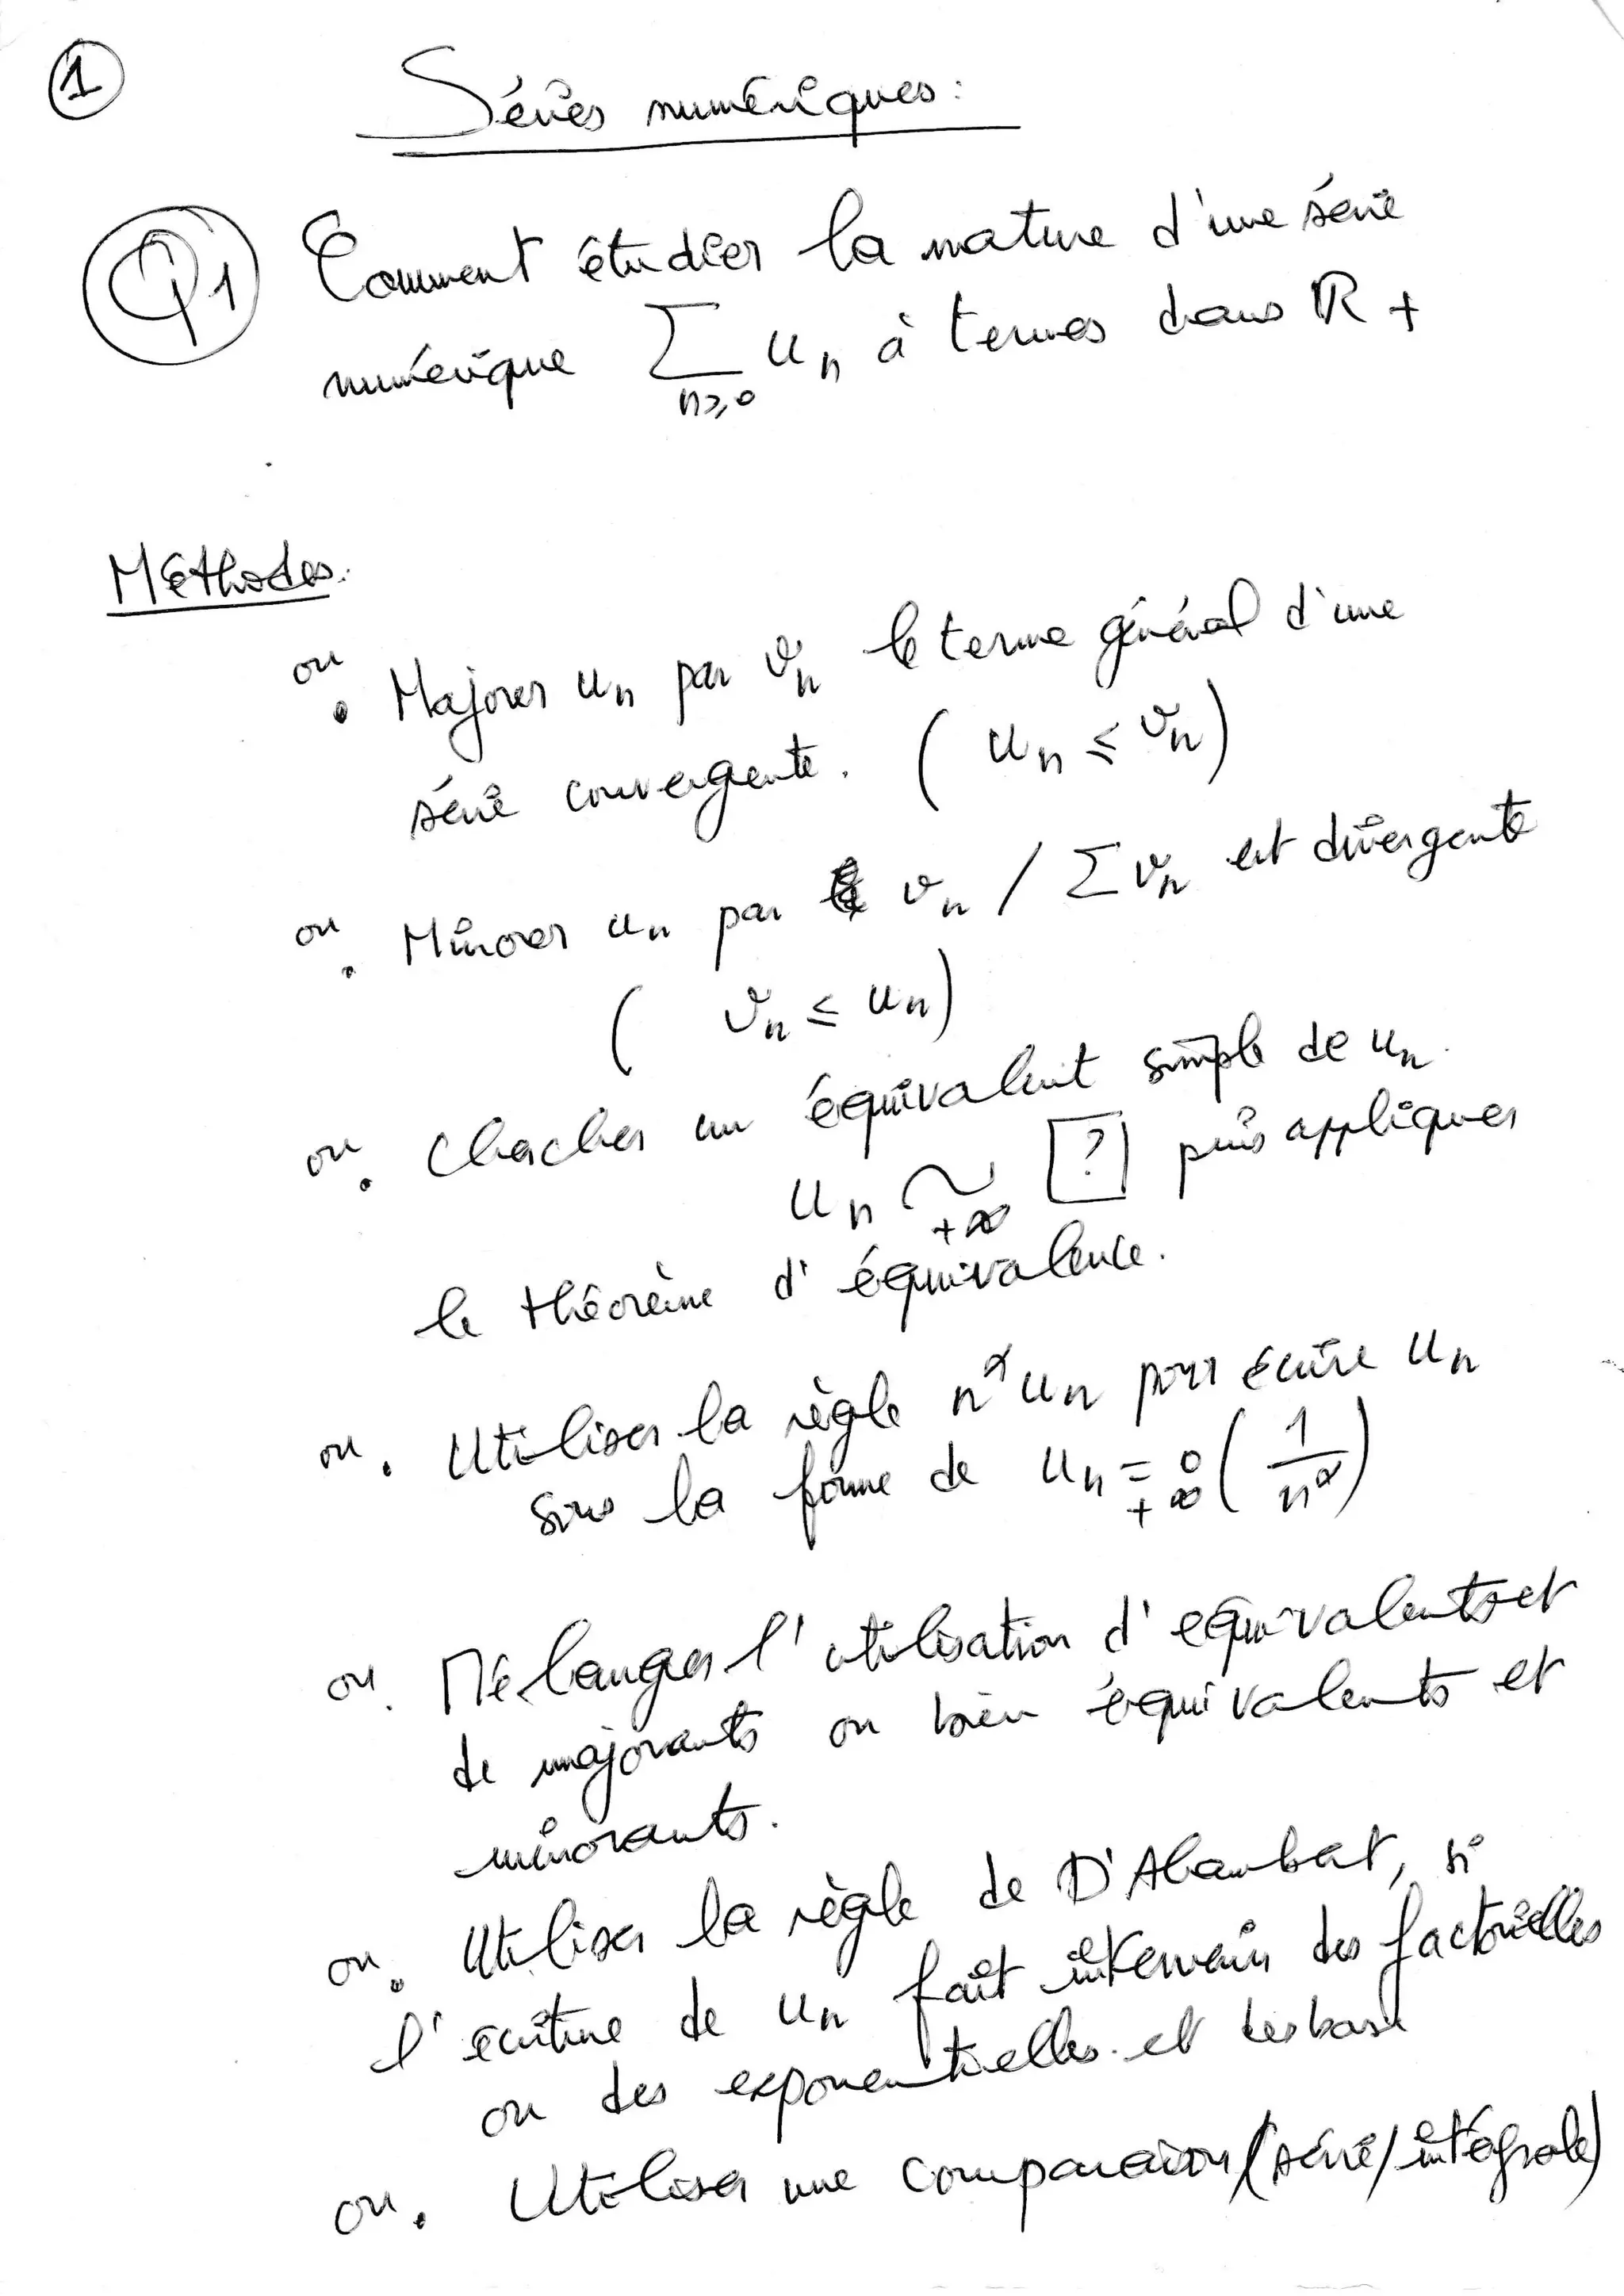 1
Séries numériques:
Q1 Comment étudier la nature d'une série
numérique ∑ un à termes dans R+
n≥0
Méthodes:
ou • Majorer un par vn le terme général d'une
série convergente. ( un ≤ vn )
ou • Minorer un par vn / ∑ vn est divergente
( vn ≤ un )
ou • Chercher un équivalent simple de un.
un ~ +∞ [?] puis appliquer
le théorème d'équivalence.
ou • Utiliser la règle n^α un pour écrire un
sous la forme de un = o +∞ ( 1/n^α )
ou • Mélanger l'utilisation d'equivalents et
de majorants ou bien équivalents et
minorants.
ou • Utiliser la règle de D'Alambert, si
l'écriture de un fait intervenir des factorielles
ou des exponentielles. et
ou • Utiliser une comparaison (série/intégrale)